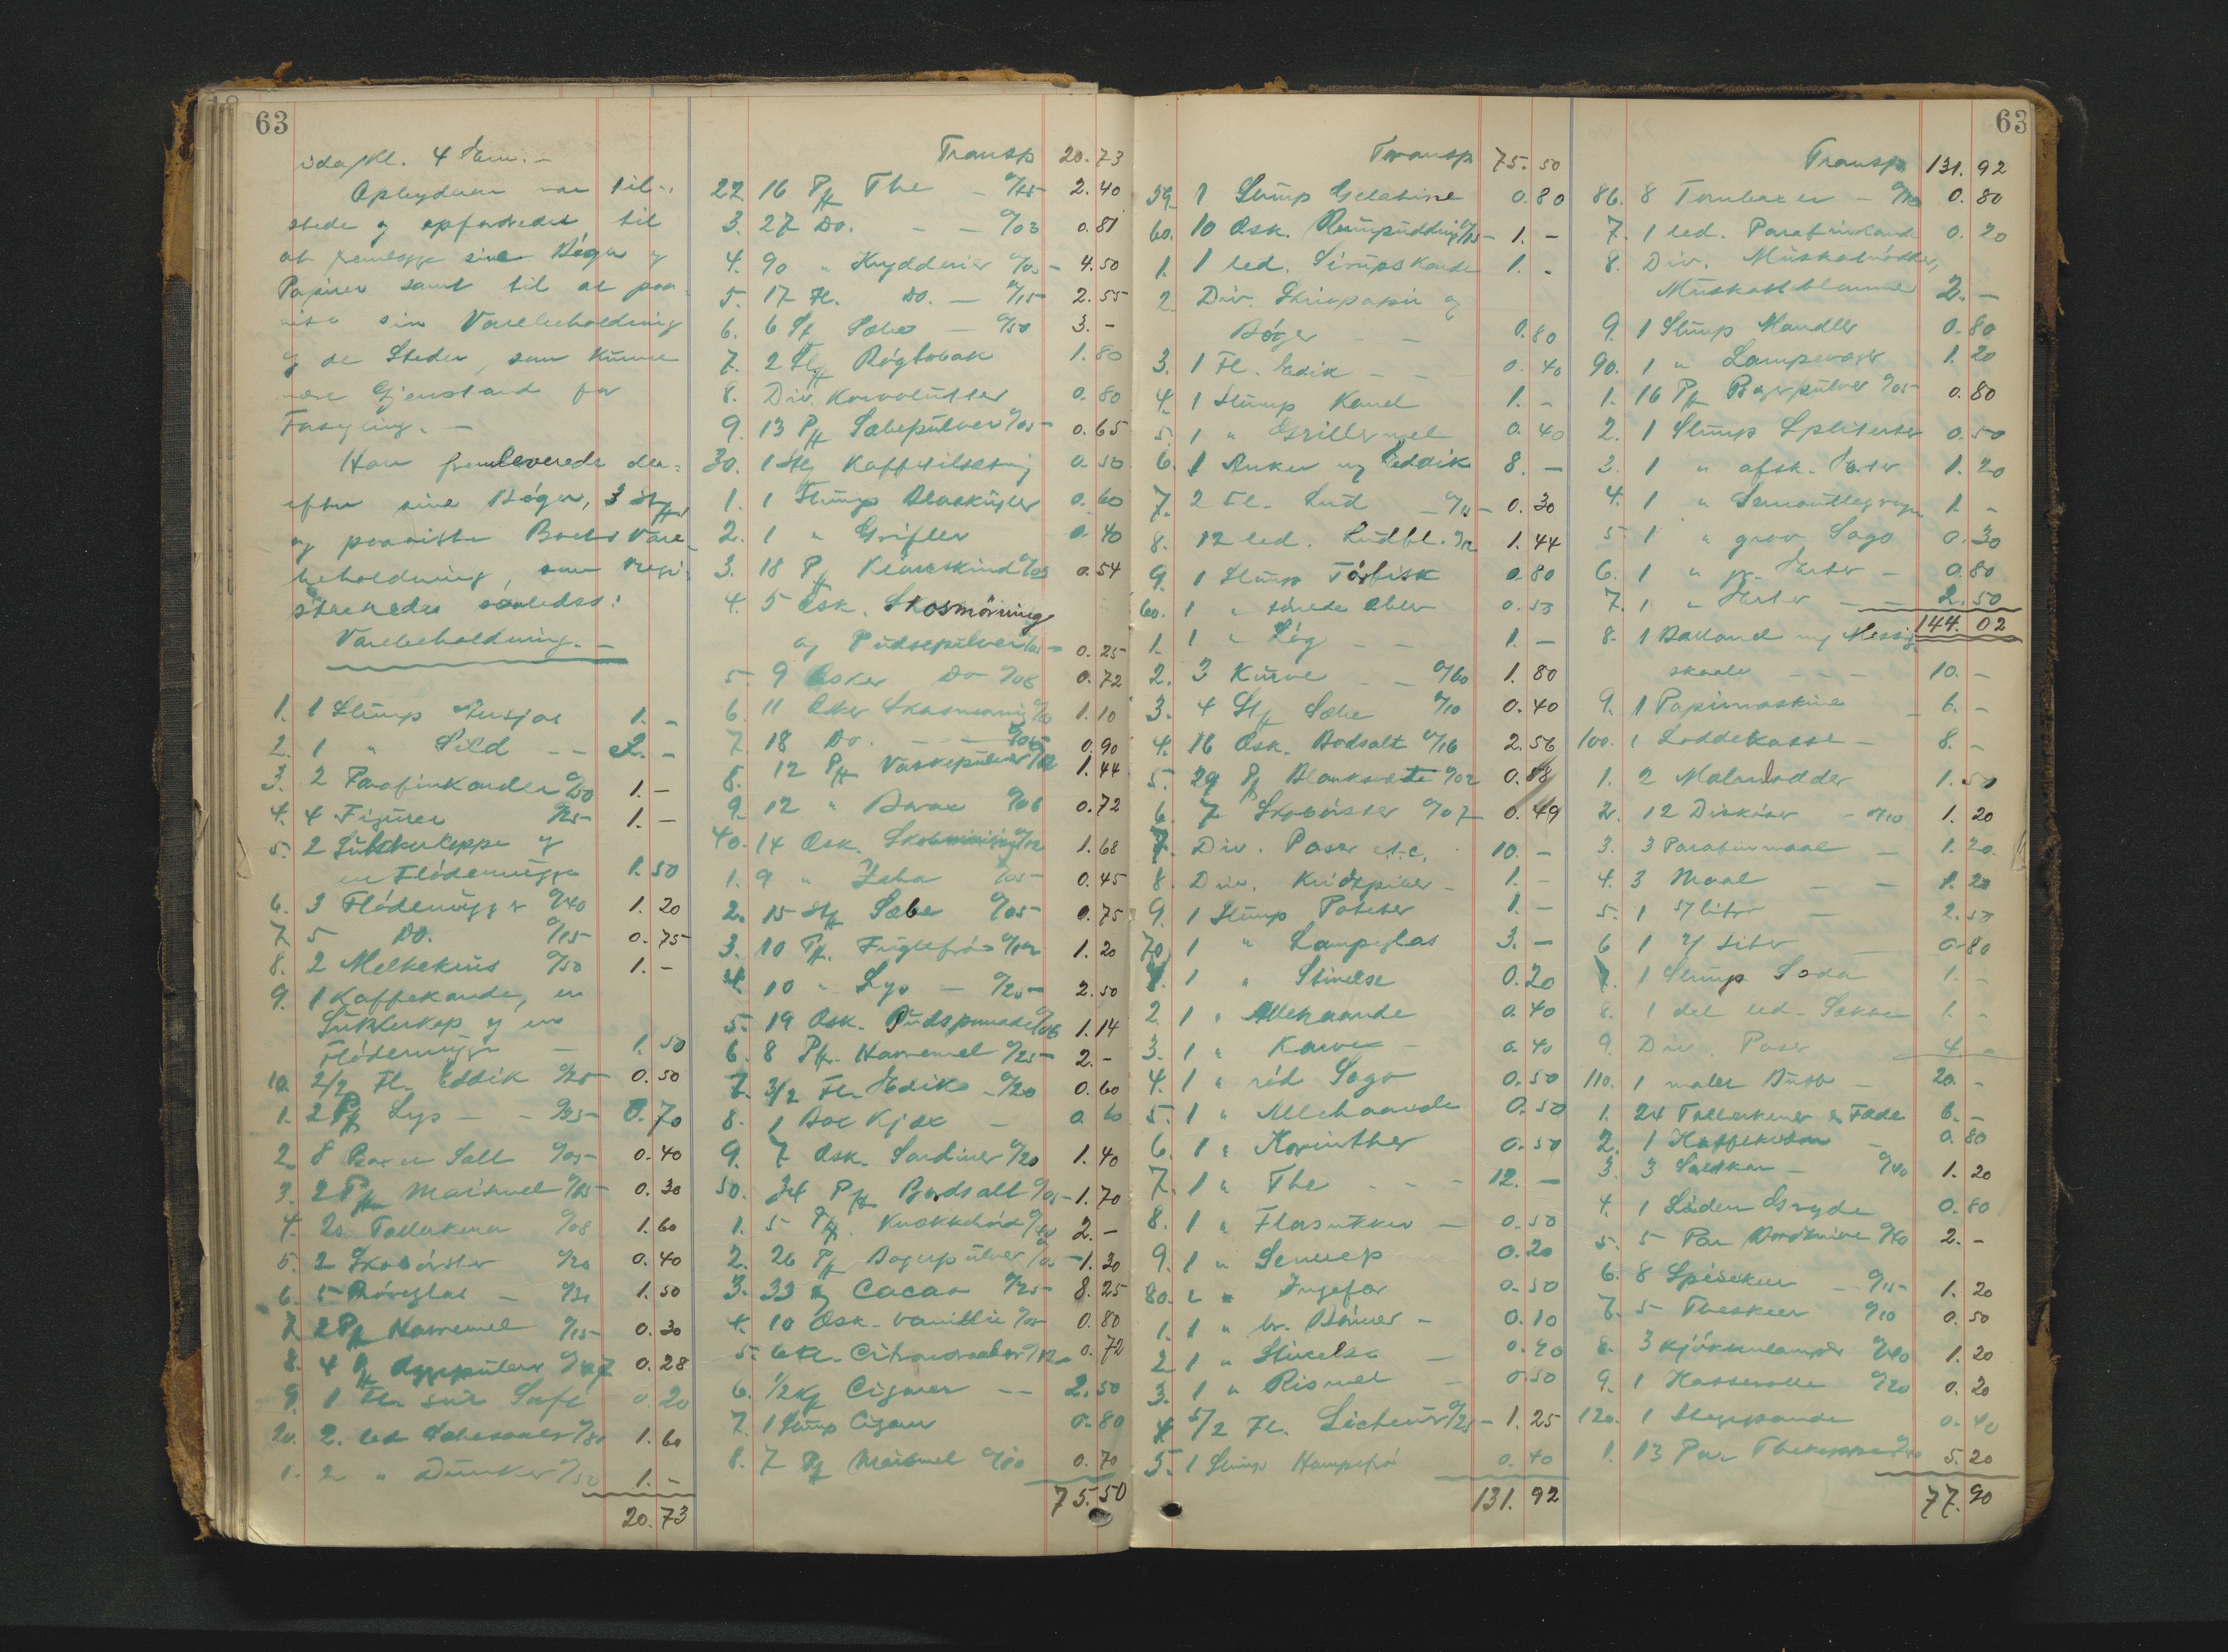 63
idag kl. 4 Em. –
Opbyderen var til-
stede og opfordredes til
at fremlægge sine Bøger og
Papirer samt til at paa-
vise sin Varebeholdning
og de Steder, som kunne
være Gjenstand for
Forsegling. –
Han fremleverede der-
efter sine Bøger, 3 Stkr,
og paaviste Boets Vare-
beholdning, som regi-
streredes saaledes:
Varebeholdning. –
1. 1 Slump Ansjos 1. –
2. 1 " Sild – – 2. –
3. 2 Parafinkander a/50 1. –
4. 4 Figurer a/25 1. –
5. 2 Sukkerkoppe og
en Flödemugge 1. 50
6. 3 Flödemugger a/40 1. 20
7. 5 Do. a/15 0. 75
8. 2 Melkekrus a/50 1. –
9. 1 Kaffekande, en
Sukkerkop og en
Flödemugge – 1. 50
10. 2/2 Fl. Eddik a/25 0. 50
1. 2 Pk Lys – – a/35 0. 70
2. 8 Poser Salt a/05 0. 40
3. 2 Pk Maismel a/15 0. 30
4. 20 Tallerkener a/08 1. 60
5. 2 Skobörster a/20 0. 40
6. 5 Pröveglas – a/30 1. 50
7. 2 Pk Havremel a/15 0. 30
8. 4 Pk Æggepulver a/07 0. 28
9. 1 Fl. sur Saft 0. 20
20. 2. led a/80 1. 60
1. 2 " Dunker a/50 1. –
20. 73
Transp 20. 73
22. 16 Pk The – a/15 2. 40
3. 27 Do. – – a/03 0. 81
4. 90 " Krydderier a/05 4. 50
5. 17 Fl. Do. – a/15 2. 55
6. 6 St Sæbe – a/50 3. –
7. 2 Stkr Røgtobak 1. 80
8. Div. Konvolutter 0. 80
9. 13 Pk Sæbepulver a/05 0. 65
30. 1 Stk Kaffetilsetning 0. 50
1. 1 Slump Blaakugler 0. 60
2. 1 " Grifler 0. 40
3. 18 Pk Klareskind a/03 0. 54
4. 5 Æsk. Skosmörning
og Pudsepulver a/05 0. 25
5. 9 Æsker Do a/08 0. 72
6. 11 Æsker Skosmörning a/10 1. 10
7. 18 Do. – – a/05 0. 90
8. 12 Pk Vaskepulver a/12 1. 44
9. 12 " Borax a/06 0. 72
40. 14 Æsk. a/12 1. 68
1. 9 " a/05 0. 45
2. 15 Stk Sæbe a/05 0. 75
3. 10 Pk. Fuglefrö a/12 1. 20
4. 10 " Lys – a/25 2. 50
5. 19 Æsk. Pudspomade a/06 1. 14
6. 8 Pk. Havremel a/25 2. –
7. 3/2 Fl. Edik a/20 0. 60
8. 1 Box Kjæx – 0. 60
9. 7 Æsk. Sardiner a/20 1. 40
50. 34 Pk Bordsalt a/05 1. 70
1. 5 Pk. Knækkebröd a/40 2. –
2. 26 Pk Bagepulver a/05 1. 30
3. 33 " Cacao a/25 8. 25
4. 10 Æsk. Vanillie a/08 0. 80
5. 6 Fl. Citrondraaber a/12 0. 72
6. 1/2 Ks Cigarer – – 2. 50
7. 1 Slump Cigarer 0. 80
8. 7 Pk Maismel a/10 0. 70
75. 50
63
Transp 75. 50
59. 1 Slump Gelatine 0. 80
60. 10 Æsk. Rumpudding a/10 1. –
1. 1 led. Sirupskande 1. –
2. Div. Skrivpapir og
Bøger – – 0. 80
3. 1 Fl. Edik – – – 0. 40
4. 1 Slump Kanel 1. –
5. 1 " Grillermel 0. 40
6. 1 Anker m/ Eddik 8. –
7. 2 Fl. Lud – a/15 0. 30
8. 12 led. Ludfl. a/12 1. 44
9. 1 Slump Törfisk 0. 80
60. 1 " törrede Æbler 0. 50
1. 1 " Løg – – 1. –
2. 3 Kurve – – a/60 1. 80
3. 4 Stk Sæbe a/10 0. 40
4. 16 Æsk. Bodsalt a/16 2. 56
5. 29 Pk Blanksverte a/02 0. 58
6. 7 Skobörster a/07 0. 49
7. Div. Poser etc. 10. –
8. Div. Kridtpiber – 1. –
9. 1 Slump Poteter 1. –
70. 1 " Lampeglas 3. –
1. 1 " Stivelse 0. 20
2. 1 " Allehaande 0. 40
3. 1 " Karve – 0. 40
4. 1 " röd Sago 0. 50
5. 1 " Allehaande 0. 50
6. 1 " Korinther 0. 50
7. 1 " The – – – 12. –
8. 1 " Flasukker – 0. 50
9. 1 " Sennep 0. 20
80. 1 " Ingefær 0. 50
1. 1 " br. Bönner – 0. 10
2. 1 " Stivelse – 0. 40
3. 1 " Rismel – 0. 50
4. 5/2 Fl. a/25 1. 25
5. 1 Slump Hampefrö 0. 40
131. 92
Transp 131. 92
86. 8 Tombaxer – a/10 0. 80
7. 1 led. Parafinkande 0. 20
8. Div. Muskatnödder,
Muskatblomme 2. –
9. 1 Slump Mandler 0. 80
90. 1 " Lampevæger 1. 20
1. 16 Pk Bagepulver a/05 0. 80
2. 1 Slump Spliterter 0. 50
3. 1 " afsk. Erter 1. 20
4. 1 " Semoullegryn 1. –
5. 1 " grov Sago 0. 30
6. 1 " gr. Erter – 0. 80
7. 1 " Erter – – 2. 50
144. 02
8. 1 Balland m/ Messing-
skaale – – – 10. –
9. 1 Papirmaskine – 6. –
100. 1 Loddekasse – 8. –
1. 2 Malerlodder 1. 50
2. 12 Disköser – a/10 1. 20
3. 3 Parafinmaal – 1. 20
4. 3 Maal – – 1. 20
5. 1 5/ liter – 2. 50
6. 1 2/ liter – 0. 80
7. 1 Slump Soda 1. –
8. 1 del led. Sække 1. –
9. Div Poser 4. –
110. 1 malet Buffet – 20. –
1. 24 Tallerkener & Fade 6. –
2. 1 Kaffekvern – 0. 80
3. 3 – a/40 1. 20
4. 1 liden Gryde 0. 80
5. 5 Par Bordknive a/40 2. –
6. 8 Spiseskeer – a/15 1. 20
7. 5 Theskeer a/10 0. 50
8. 3 Kjökkenlamper a/40 1. 20
9. 1 Kasserolle a/20 0. 20
120. 1 Stegepande 0. 40
1. 13 Par Thekopper a/40 5. 20
77. 90